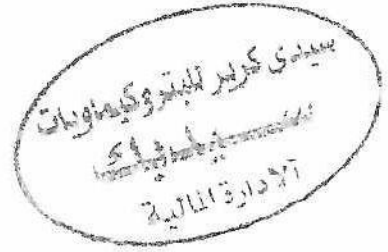 سيدى كرير للبتروكيماويات
سيدبك
الادارة المالية